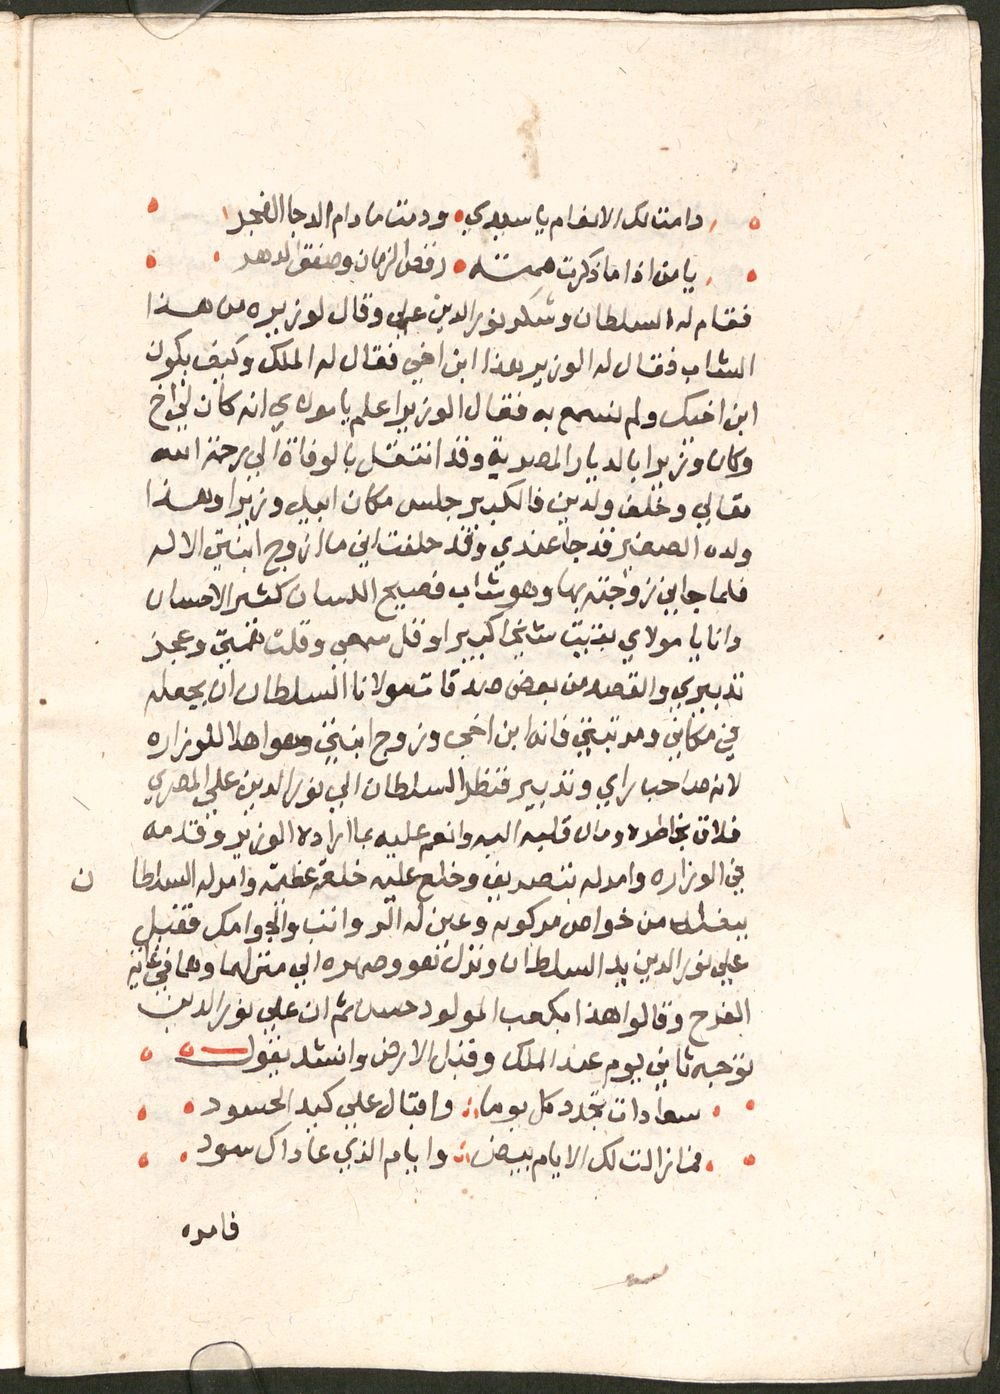 دامت لك الانعام يا سيدي • ودمت ما دام الدجا الفجرا
يا من اذا ما ذكرت همته • رقص الزمان وصفق الدهر
فقام له السلطان وشكر نور الدين علي وقال لوزيره من هذا
الشاب فقال له الوزير هذا ابن اخي فقال له الملك وكيف يكون
ابن اخيك ولم نسمع به فقال الوزير اعلم يا مولاي انه كان لي اخ
وكان وزيرا بالديار المصرية وقد انتقل بالوفاة الي رحمة الله
تعالي وخلف ولدين فالكبير جلس مكان ابيه وزيرا وهذا
ولده الصغير قد جا عندي وقد حلفت اني ما ازوج ابنتي الا له
فلما جاني زوجته بها وهو شاب فصيح اللسان كثير الاحسان
وانا يا مولاي بقيت شيخا كبيرا وقل سمعي وقلت همتي وعجز
تدبيري والقصد من بعض صدقات مولانا السلطان ان يجعله
في مكاني ومرتبتي فانه ابن اخي وزوج ابنتي وهو اهلا للوزاره
لانه صاحب راي وتدبير فنظر السلطان الي نور الدين علي المصري
فلاق بخاطره ومال قلبه اليه وانعم عليه بما اراده الوزير وقدمه
في الوزاره وامر له بتصريف وخلع عليه خلعة عظيمة وامر له السلطا ن
ببغلة من خواص مركوبه وعين له الرواتب والجوامك فقبل
علي نور الدين يد السلطان ونزل هو وصهره الي منزلهما وهما في غاية
الفرح وقالوا هذا بكعب المولود حسن ثم ان علي نور الدين
توجه ثاني يوم عند الملك وقبل الارض وانشد يقول
سعادات تجدد كل يوما ⁖ واقبال علي كيد الحسود
فما زالت لك الايام بيض ⁖ وايام الذي عاداك سود
فامره